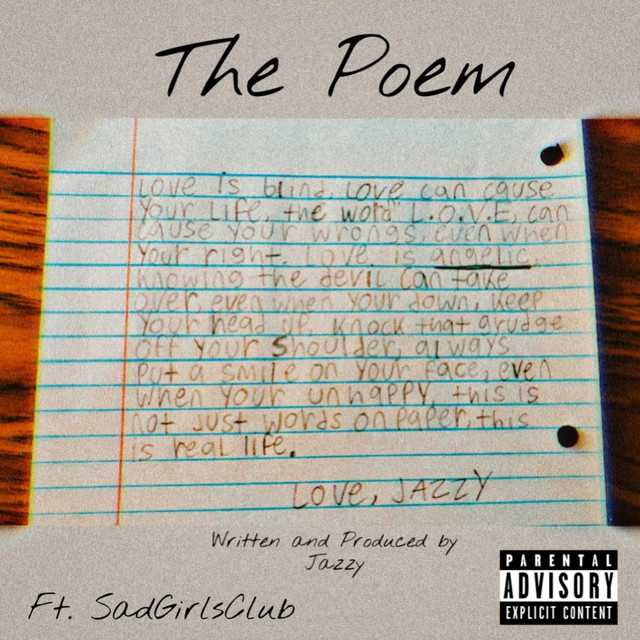 The Poem
Love is blind, love can cause
your life, the word "L.O.V.E, can
cause your wrongs, even when
your right. Love is angelic,
knowing the devil can take
over, even when your down, keep
your head up, knock that grudge
off your shoulder, always
put a smile on your face, even
when your unhappy, this is
not just words on paper, this
is real life.
Love, JAZZY
Written and Produced by
Jazzy
Ft. SadGirlsClub
PARENTAL
ADVISORY
EXPLICIT CONTENT